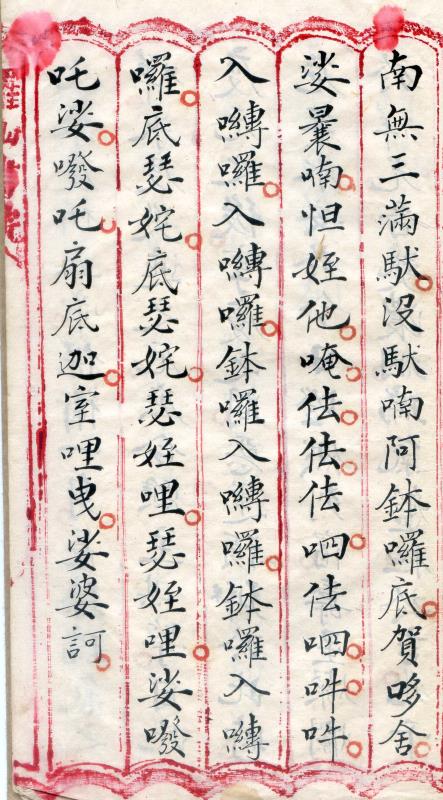 南無三滿馱没馱喃阿鉢囉底賀哆舍
娑曩喃怛姪他唵佉佉佉呬佉呬吽吽
入嚩囉入嚩囉鉢囉入嚩囉鉢囉入嚩
囉底瑟姹底瑟姹瑟姪哩瑟姪哩娑嘙
吒娑嘙吒扇底迦室哩曳娑婆訶